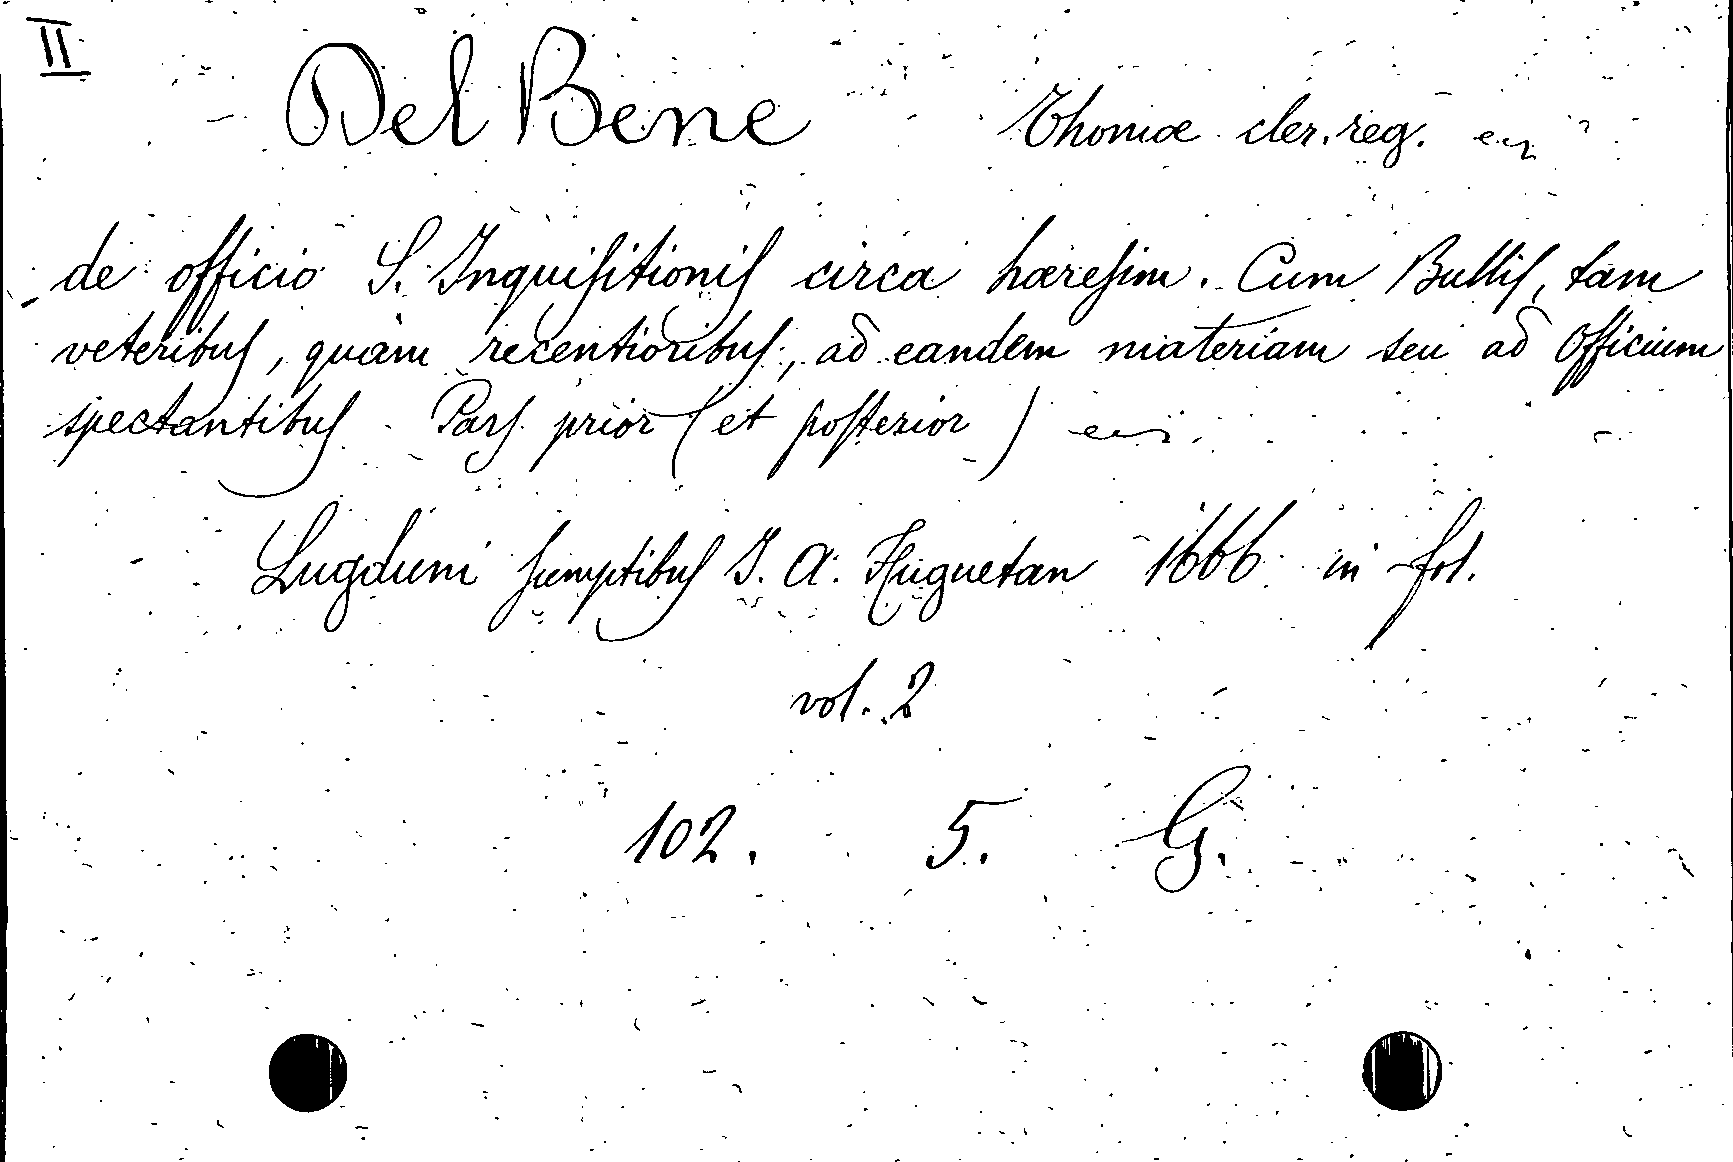 II
Del Bene Thomæ cler. reg.
de officio S. Inquiſitioniſ circa hæreſim. Cum Bulliſ, tam
veteribuſ, quàm recentioribuſ, ad eandem materiam seu ad Officium
spectantibuſ Parſ prior (et poſterior)
Lugduni ſumptibuſ J. A. Huguetan 1666 in fol.
vol. 2
102. 5. G.